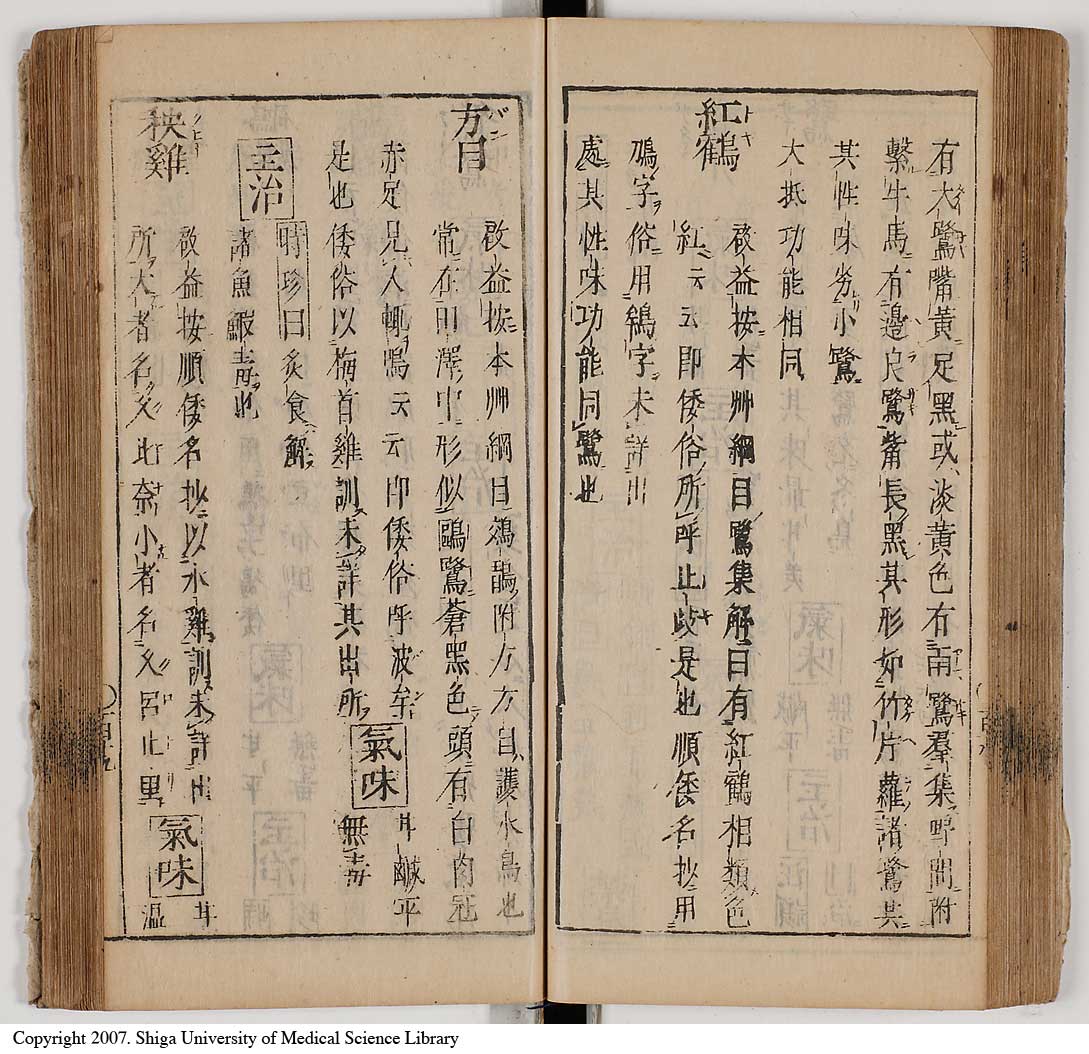 有大鷺嘴黃足黑或淡黃色有雨鷺羣集野間附
繫牛馬有邊良鷺觜長黑其形如竹片蘿諸鷺其
其性味劣小鷺
大抵功能相同
紅鶴
啟益按本艸綱目鷺集解曰有紅鶴相類色
紅云云即倭俗所呼止岐是也順倭名抄用
鴇字俗用鵇字未詳出
處其性味功能同鷺也
方目
啟益按本艸綱目鵁鶄附方方目護水鳥也
常在田澤中形似鷗鷺蒼黑色頭有白肉冠
赤足見人輙鳴云云即倭俗呼波牟
是也倭俗以梅首雞訓未詳其出所 氣味 甘鹹平無毒
主治 時珍曰炙食解
諸魚鰕毒也
秧雞
啟益按順倭名抄以水雞訓未詳出
所大者名久比奈小者名久呂止里 氣味 甘溫
百九
Copyright 2007. Shiga University of Medical Science Library